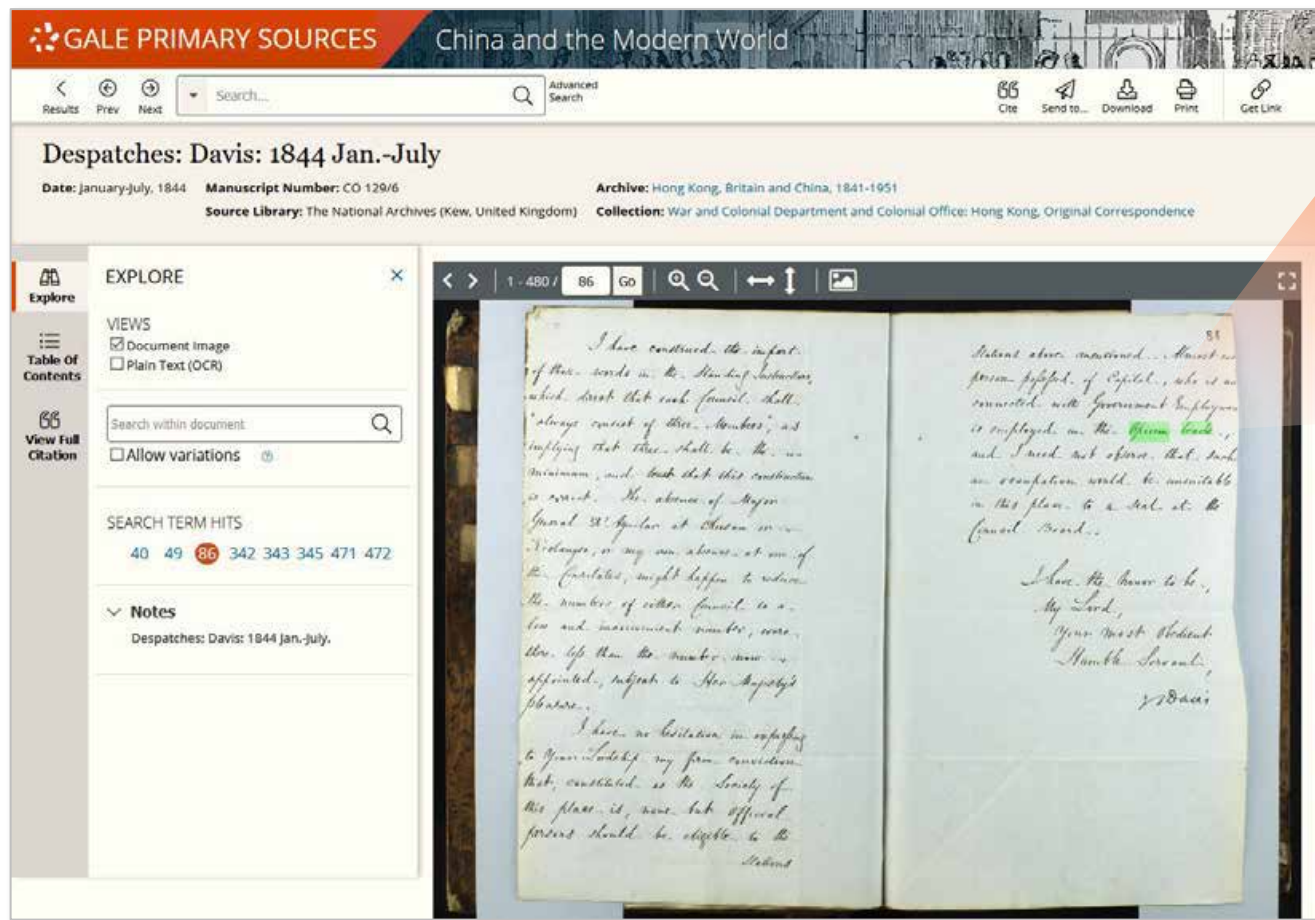 GALE PRIMARY SOURCES
China and the Modern World
Results
Prev
Next
Search...
Advanced
Search
Cite
Send to...
Download
Print
Get Link
Despatches: Davis: 1844 Jan.-July
Date: January-July, 1844
Manuscript Number: CO 129/6
Archive: Hong Kong, Britain and China, 1841-1951
Source Library: The National Archives (Kew, United Kingdom)
Collection: War and Colonial Department and Colonial Office: Hong Kong, Original Correspondence
Explore
Table Of
Contents
View Full
Citation
EXPLORE
VIEWS
Document Image
Plain Text (OCR)
Search within document
Allow variations
SEARCH TERM HITS
40 49 86 342 343 345 471 472
Notes
Despatches: Davis: 1844 Jan.-July.
1 - 480 / 86 Go
I have construed the import
of these words in the Standing Instructions,
which direct that each Council shall
"always consist of three Members", as
implying that three shall be the
minimum, and trust that this construction
is correct. The absence of Major
General D'Aguilar at Chusan or
Kolangsoo, or my own absence at one of
the Consulates, might happen to reduce
the number of either Council to a
low and inconvenient number, were
there less than the number now
appointed, subject to Her Majesty's
pleasure.
I have no hesitation in expressing
to Your Lordship my firm conviction
that, constituted as the Society of
this place is, none but official
persons should be eligible to the
Stations
Stations above mentioned. Almost
person possessed of Capital, who is
connected with Government Employment
is employed in the Opium trade,
and I need not observe that such
an occupation would be unsuitable
in this place to a seat at the
Council Board.
I have the honor to be,
My Lord,
Your most Obedient
Humble Servant,
Davis